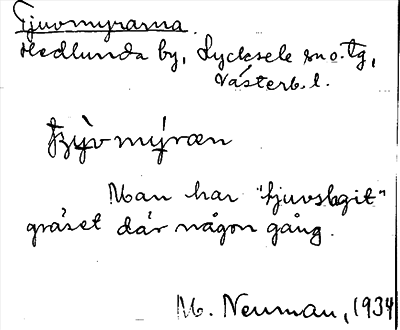 Tjuvmyrarna
Hedlunda by, Lycksele sn o. tg,
Västerb. l.
Man har "tjuvslagit"
gräset där någon gång.
M. Neuman, 1934